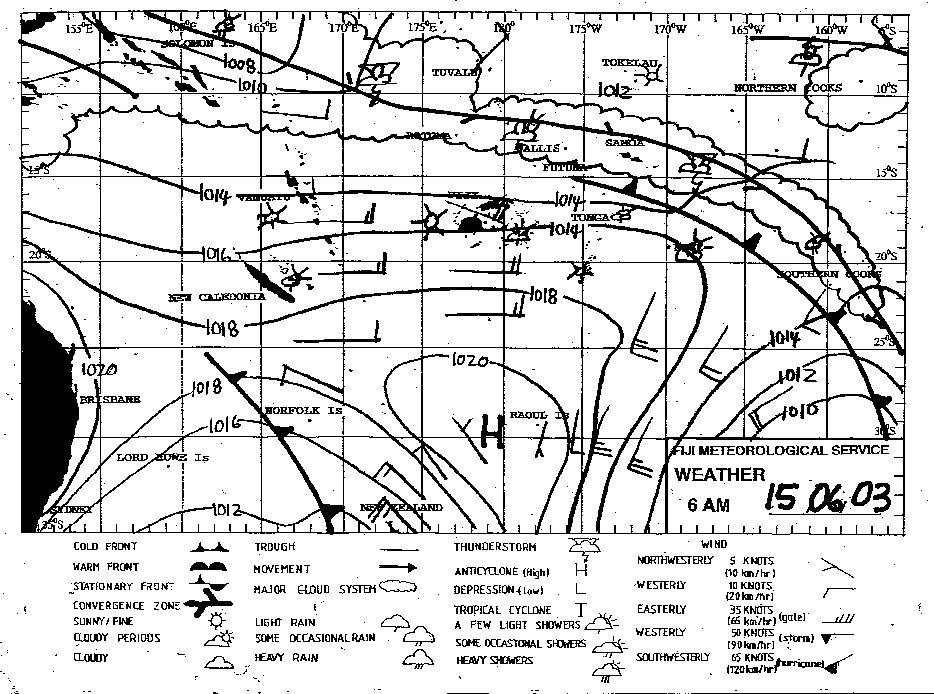 155°E 160°E 165°E 170°E 175°E 180° 175°W 170°W 165°W 160°W 5°S
SOLOMON IS
1008
1010
TUVALU
TOKELAU
1012
NORTHERN COOKS
10°S
ROTUMA
WALLIS
SAMOA
FUTUNA
15°S 15°S
1014
VANUATU
FIJI
1014
TONGA
1014
1016
20°S 20°S
SOUTHERN COOKS
NEW CALEDONIA
1018
1018
1014
25°S
1020
1020
1018
1012
BRISBANE
NORFOLK Is
RAOUL Is
1010
1016
H
30°S
LORD HOWE Is
1012
NEW ZEALAND
SYDNEY
35°S
FIJI METEOROLOGICAL SERVICE
WEATHER
6 AM 15 06 03
COLD FRONT
WARM FRONT
STATIONARY FRONT
CONVERGENCE ZONE
SUNNY/FINE
CLOUDY PERIODS
CLOUDY
TROUGH
MOVEMENT
MAJOR CLOUD SYSTEM
LIGHT RAIN
SOME OCCASIONAL RAIN
HEAVY RAIN
THUNDERSTORM
ANTICYCLONE (High) H
DEPRESSION (low) L
TROPICAL CYCLONE T
A FEW LIGHT SHOWERS
SOME OCCASIONAL SHOWERS
HEAVY SHOWERS
WIND
NORTHWESTERLY 5 KNOTS
(10 km/hr)
WESTERLY 10 KNOTS
(20 km/hr)
EASTERLY 35 KNOTS
(65 km/hr) (gale)
WESTERLY 50 KNOTS
(90 km/hr) (storm)
SOUTHWESTERLY 65 KNOTS
(120 km/hr) (hurricane)